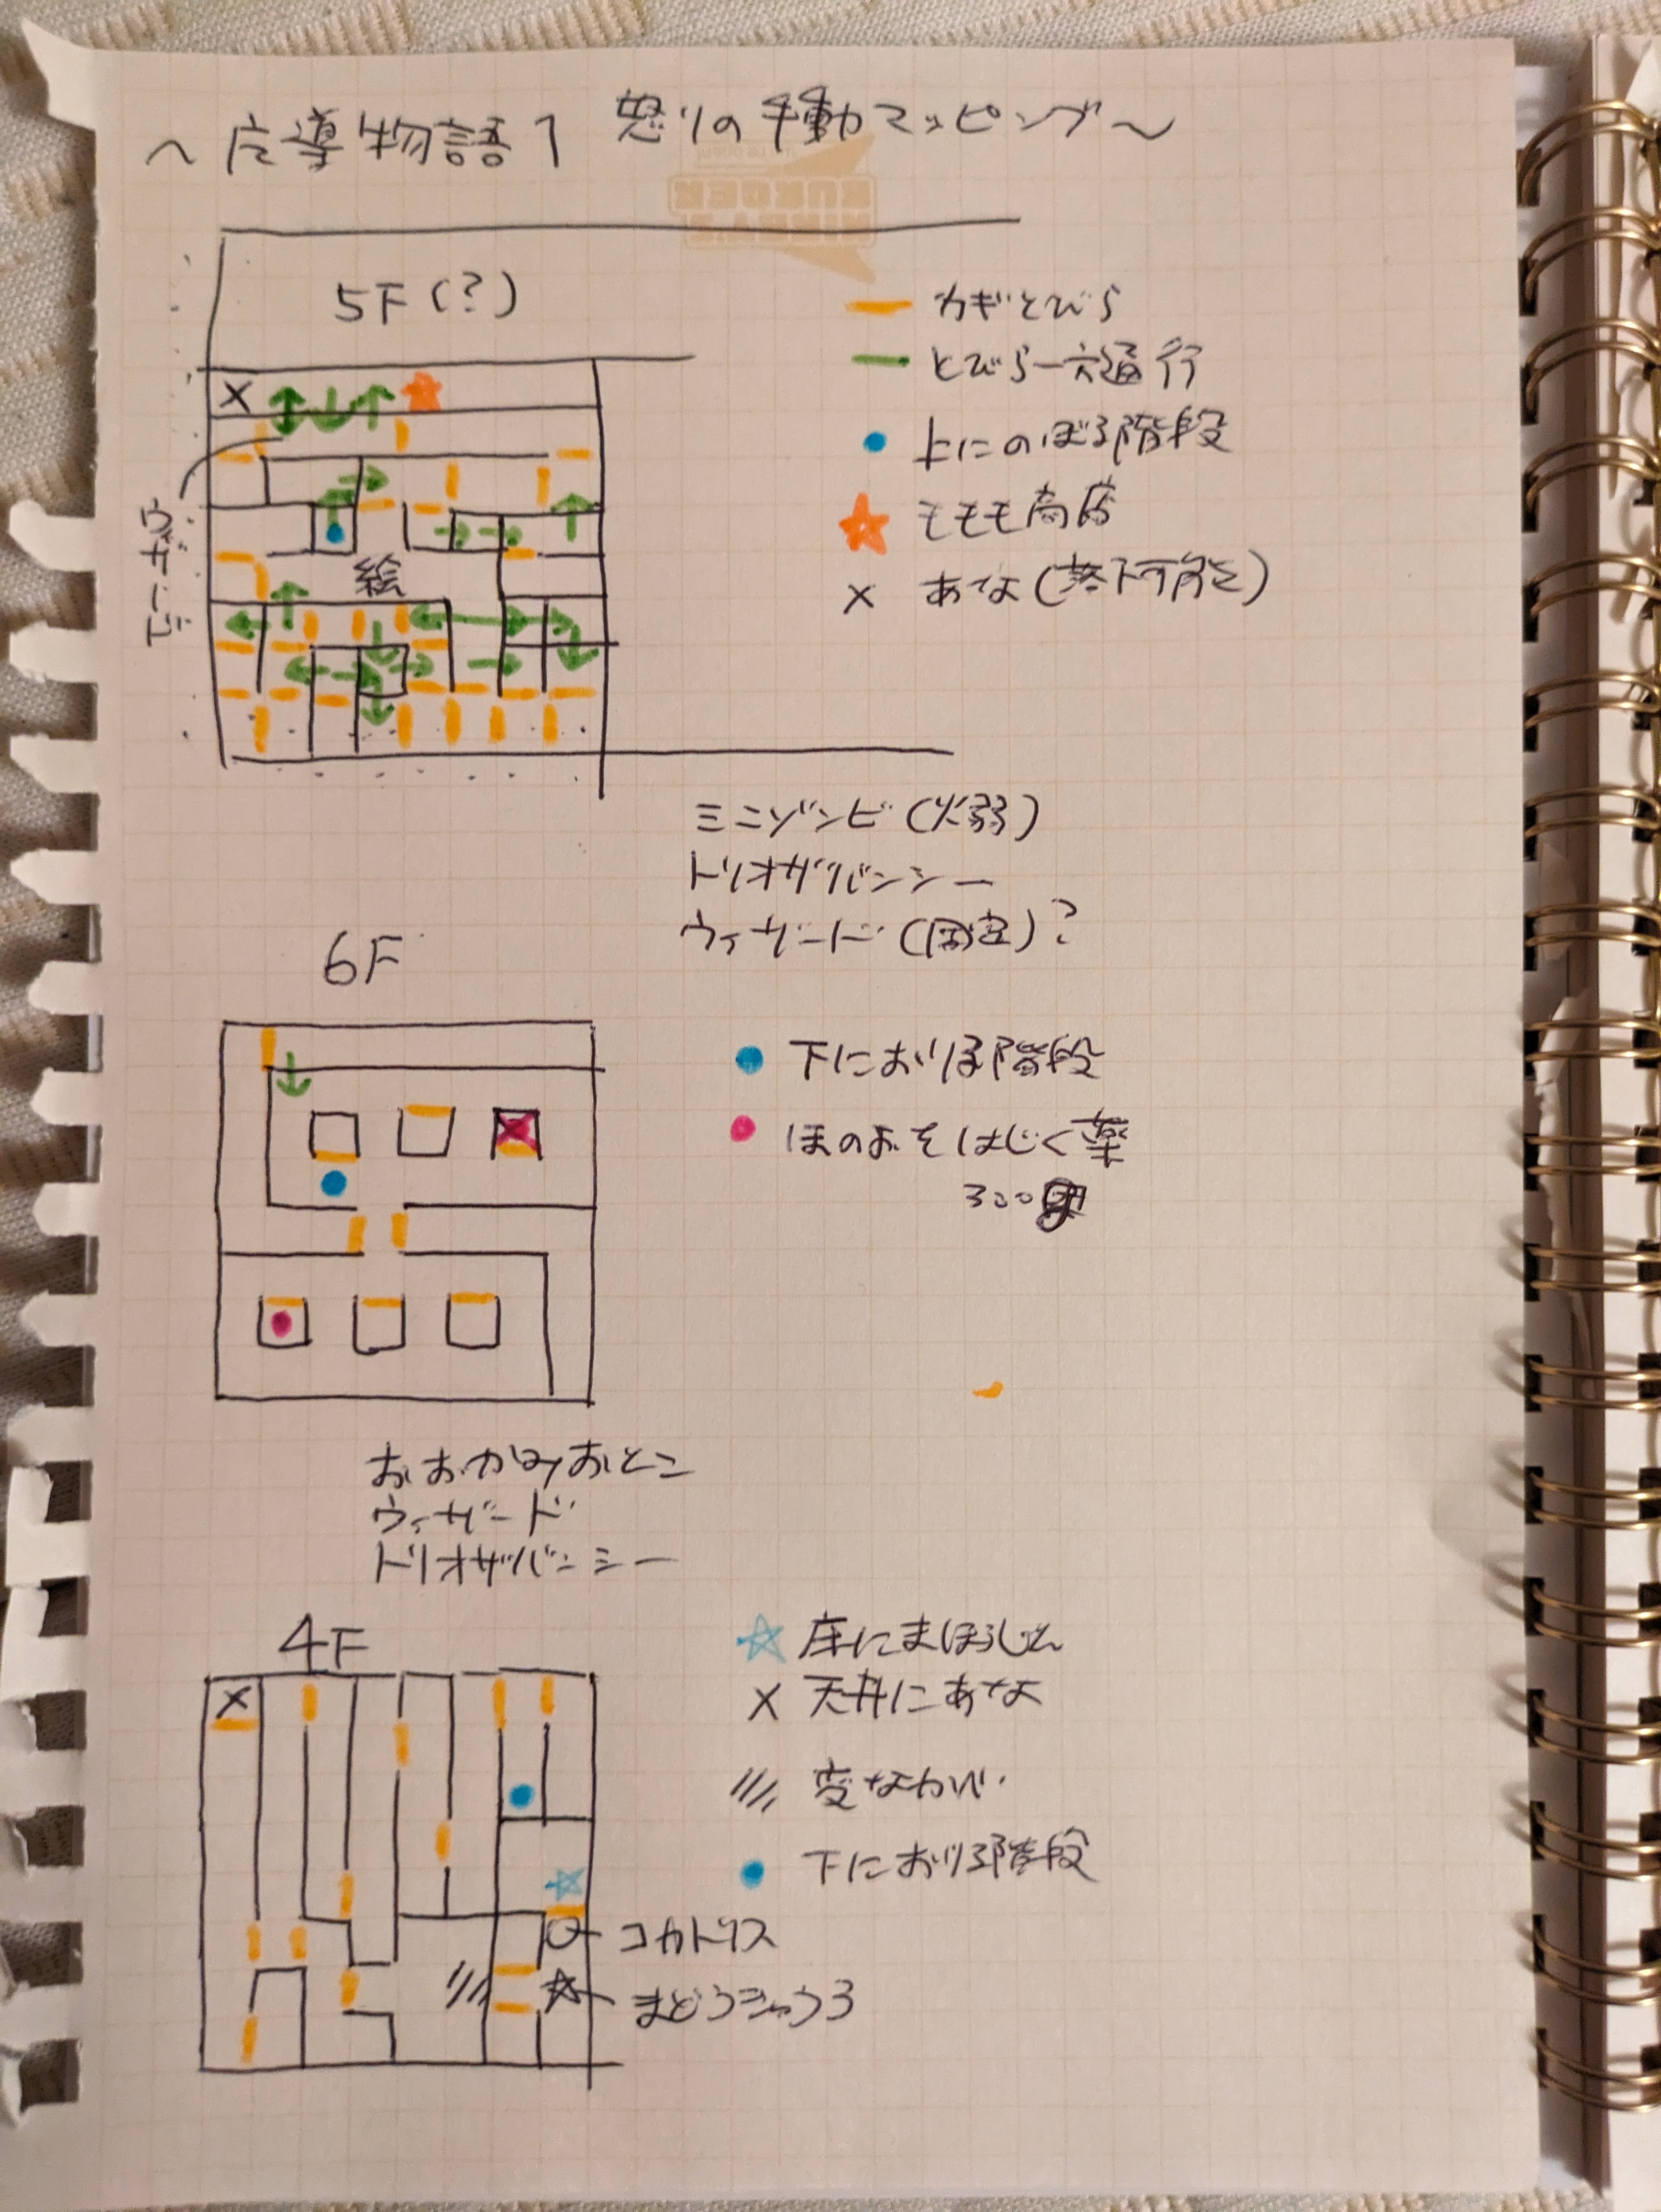 〜广導物語1 怒りの手動マッピング〜
5F(?)
カギとびら
とびら一方通行
上にのぼる階段
モモモ商店
× あな(落下可能)
絵
ミニゾンビ(火弱)
トリオザバンシー
ウィザード(固定)?
6F
下におりる階段
ほのおをはじく薬
300
おおかみおとこ
ウィザード
トリオザバンシー
4F
床にまほうじん
× 天井にあな
/// 変なかべ
下におりる階段
コカトリス
まどうきゅう3